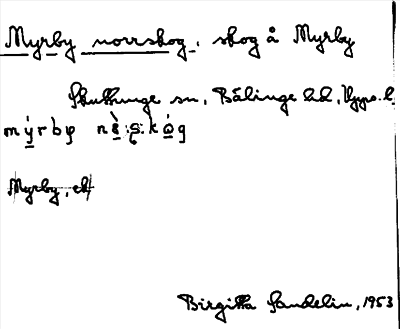 Myrby norrskog, skog å Myrby
Skuttunge sn, Bälinge hd, Upps. l.
Myrby, ek
Birgitta Sandelin, 1953